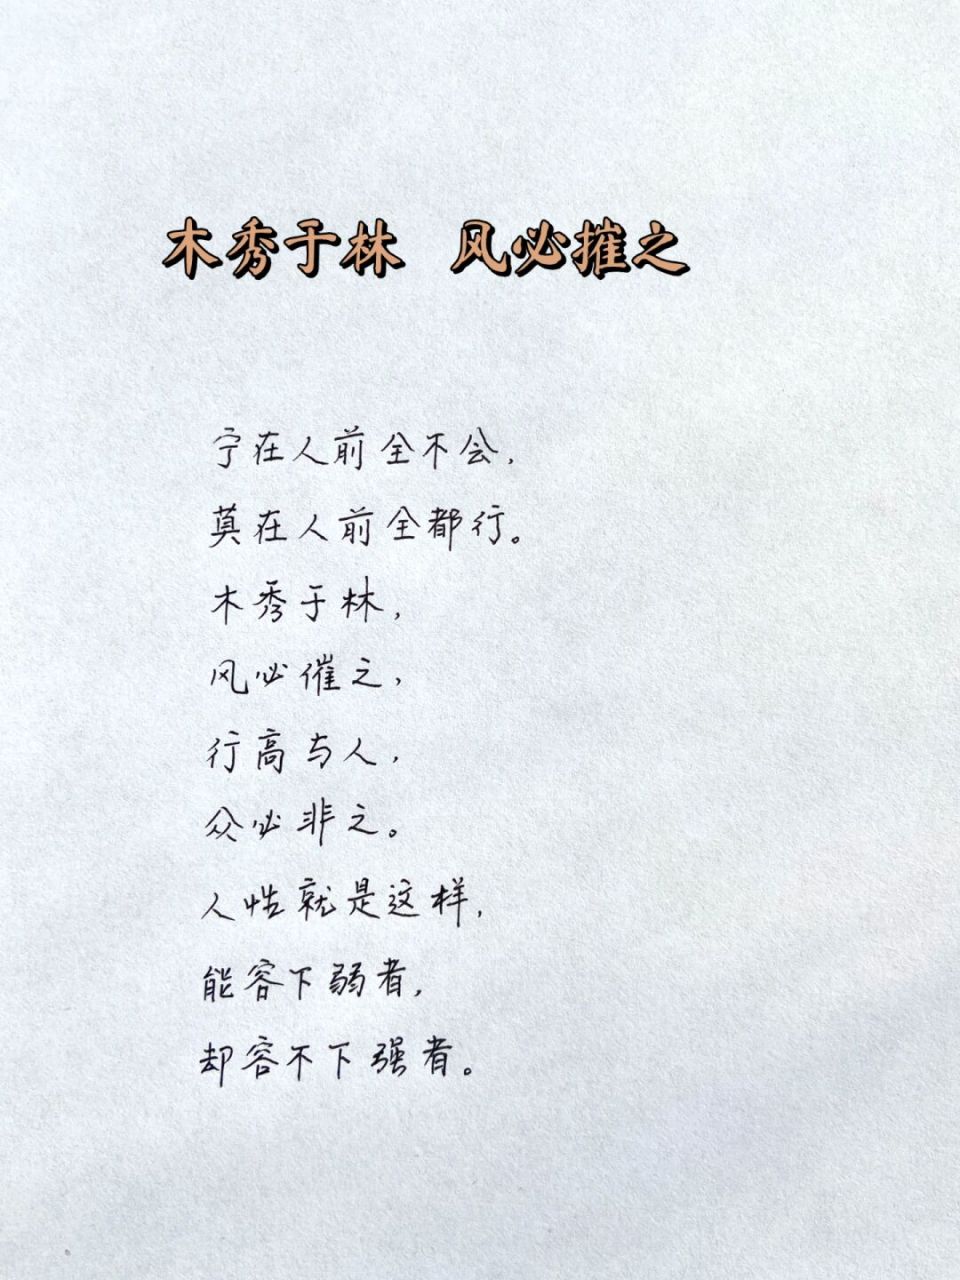 木秀于林 风必摧之
宁在人前全不会,
莫在人前全都行。
木秀于林,
风必催之,
行高与人,
众必非之。
人性就是这样,
能容下弱者,
却容不下强者。